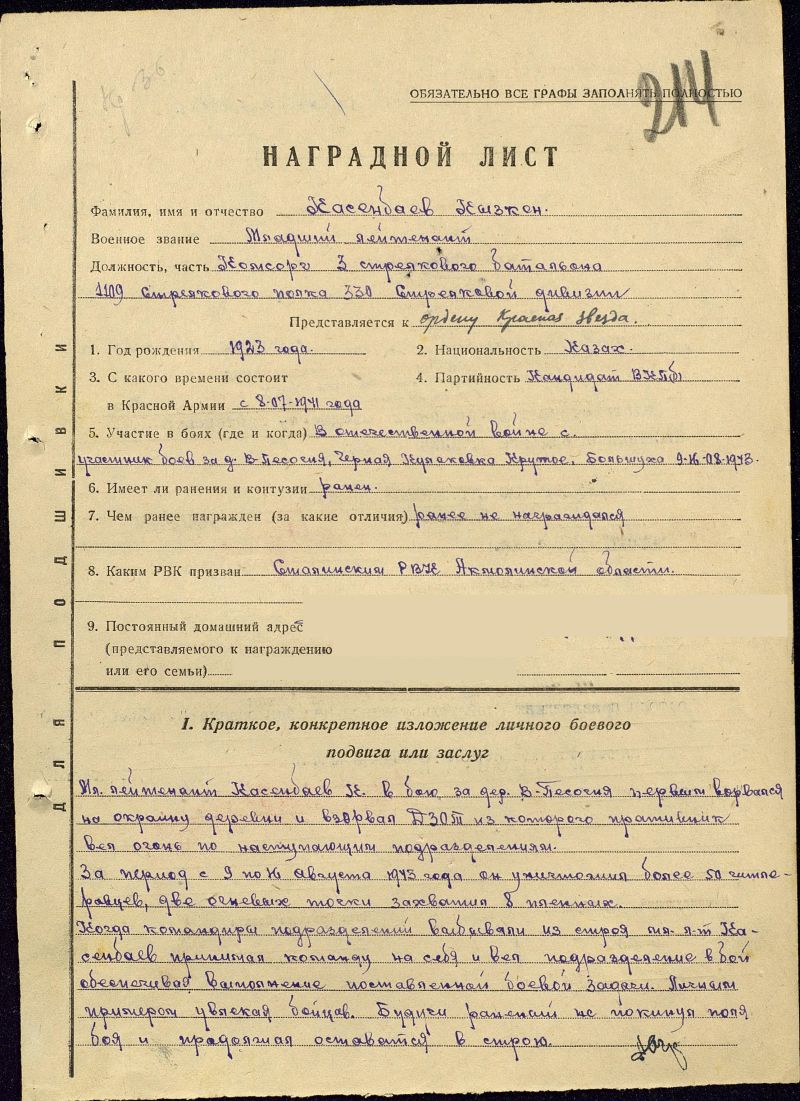 ОБЯЗАТЕЛЬНО ВСЕ ГРАФЫ ЗАПОЛНЯТЬ ПОЛНОСТЬЮ
214
НАГРАДНОЙ ЛИСТ
Фамилия, имя и отчество Касенбаев
Военное звание Младший лейтенант
Должность, часть Комсорг 3 стрелкового батальона
1109 Стрелкового полка 330 Стрелковой дивизии
Представляется к ордену Красная звезда.
1. Год рождения 1923 года.
2. Национальность Казах.
3. С какого времени состоит
в Красной Армии с 8-07-1941 года
4. Партийность Кандидат ВКПб
5. Участие в боях (где и когда) В отечественной войне с.
участник боев за д. В-Песочня, Черная Кулаковка Крутое. Большуха 9-16-08-1943.
6. Имеет ли ранения и контузии ранен.
7. Чем ранее награжден (за какие отличия) ранее не награждался
8. Каким РВК призван Сталинским РВК Акмолинской области.
9. Постоянный домашний адрес
(представляемого к награждению
или его семьи)
ДЛЯ ПОДШИВКИ
I. Краткое, конкретное изложение личного боевого
подвига или заслуг
Мл. лейтенант Касенбаев К. в бою за дер. В-Песочня первым ворвался
на окраину деревни и взорвал ДЗОТ из которого противник
вел огонь по наступающим подразделениям.
За период с 9 по 16 августа 1943 года он уничтожил более 50 гитле-
ровцев, две огневых точки захватил 8 пленных.
Когда командиры подразделений выбывали из строя мл. л-т Ка-
сенбаев принимал команду на себя и вел подразделение в бой
обеспечивая выполнение поставленной боевой задачи. Личным
примером увлекал бойцов. Будучи раненый не покинул поля
боя и продолжал оставатся в строю.